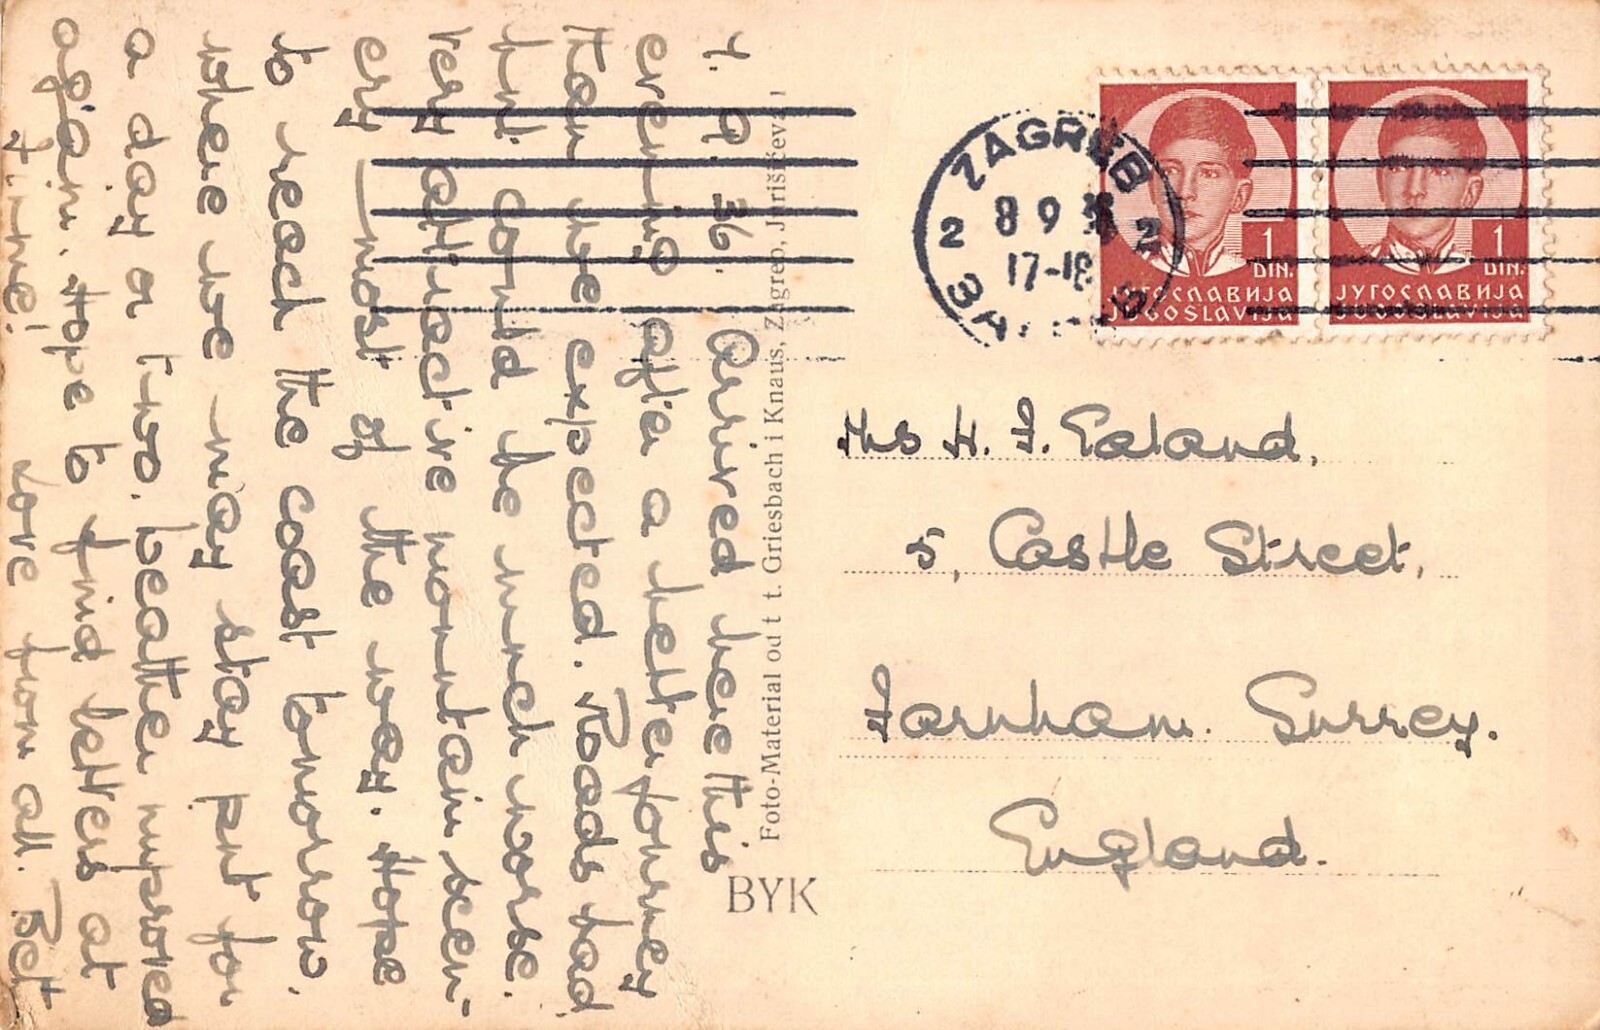 7. 9. 36. Arrived here this
evening after a better journey
than we expected. Roads bad
but could be much worse.
Very attractive mountain scen-
ery most of the way. Hope
to reach the coast tomorrow.
where we may stay put for
a day or two. Weather improved
again. Hope to find letters at
Fiume! Love from all. Bet
Foto-Material od t. t. Griesbach i Knaus, Zagreb, Jurišićeva 1
BYK
ZAGREB
2 8 9 36 2
17-18
ЗАГРЕБ
1
DIN.
ЈУГОСЛАВИЈА
JUGOSLAVIJA
1
DIN.
ЈУГОСЛАВИЈА
JUGOSLAVIJA
Mrs H. F. Ealand,
5, Castle Street,
Farnham. Surrey.
England.